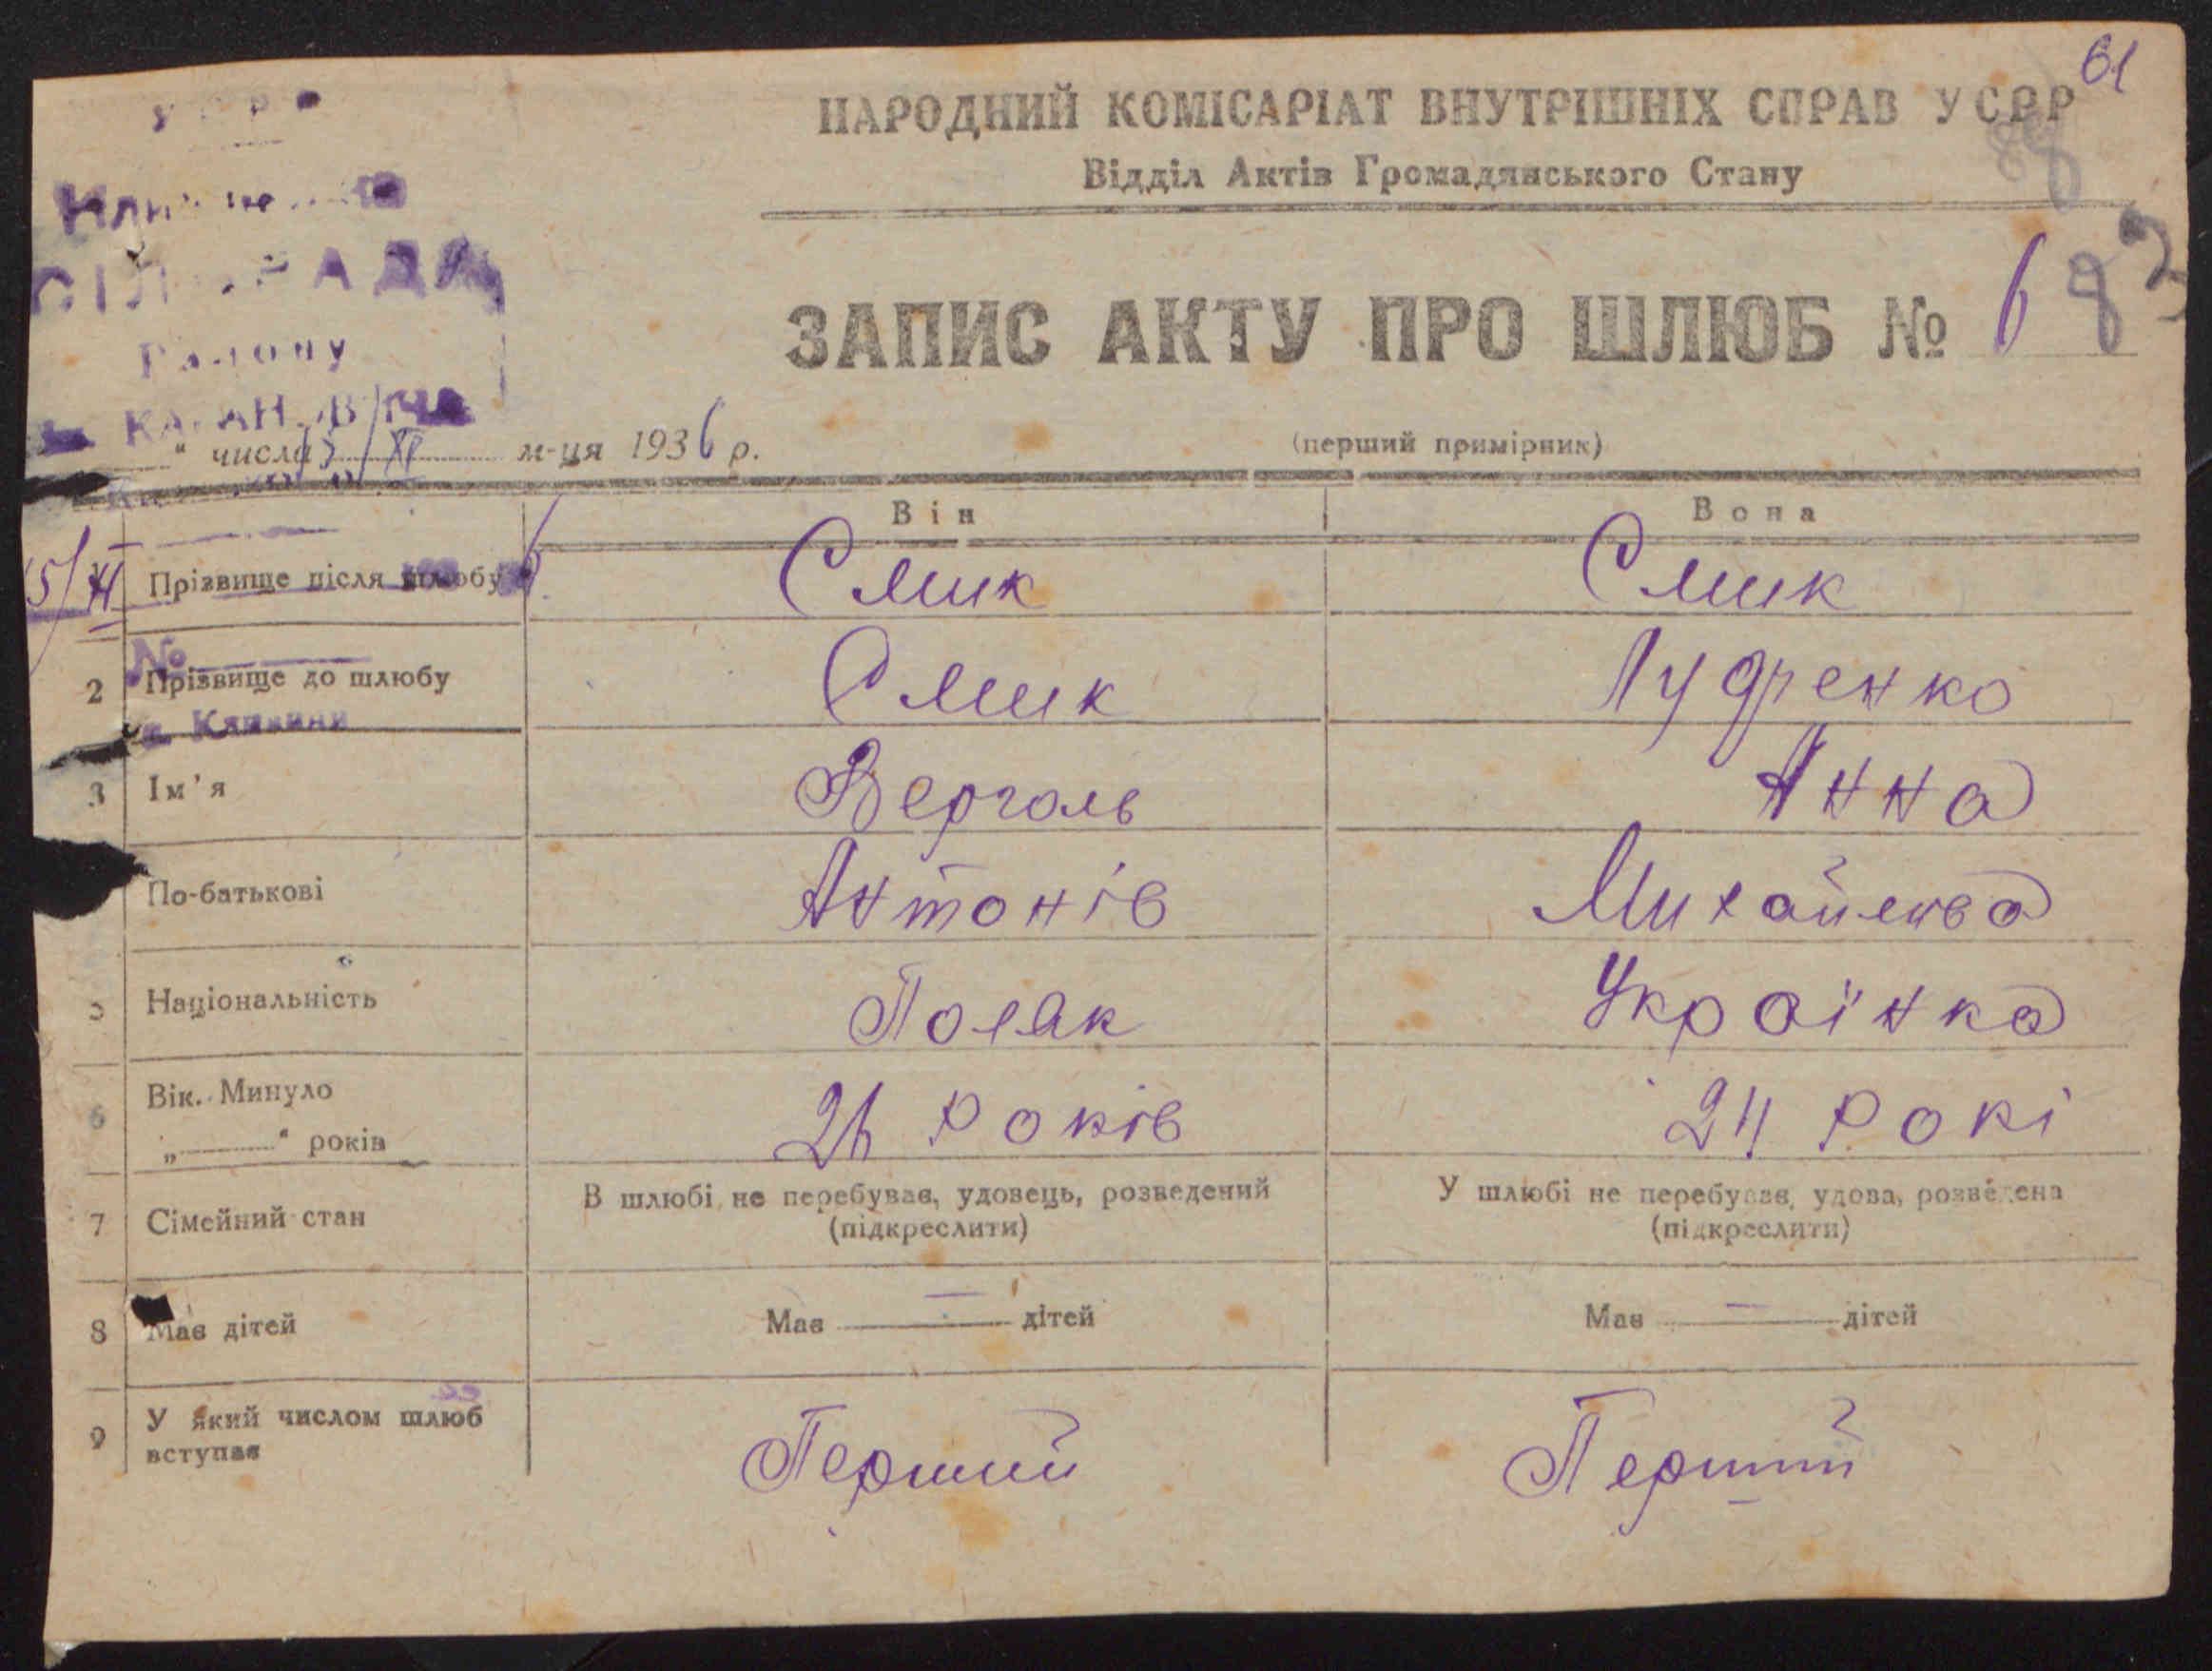 61
НАРОДНИЙ КОМІСАРІАТ ВНУТРІШНІХ СПРАВ УСРР
88
Відділ Актів Громадянського Стану
СІЛ РАДА
Району
ЗАПИС АКТУ ПРО ШЛЮБ № 6
83
" числа 5/XI м-ця 1936 р.
(перший примірник)
Він Вона
5/XI Прізвище після шлюбу Смик Смик
№
2 Прізвище до шлюбу Смик Лудченко
3 Ім'я Верголь Анна
По-батькові Антонів Михайлова
5 Національність Поляк Українка
6 Вік. Минуло
„ “ років 26 років 24 рокі
7 Сімейний стан В шлюбі не перебував, удовець, розведений У шлюбі не перебуває, удова, розведена
(підкреслити) (підкреслити)
8 Має дітей Має — дітей Має — дітей
9 У який числом шлюб
вступає Перший Перший